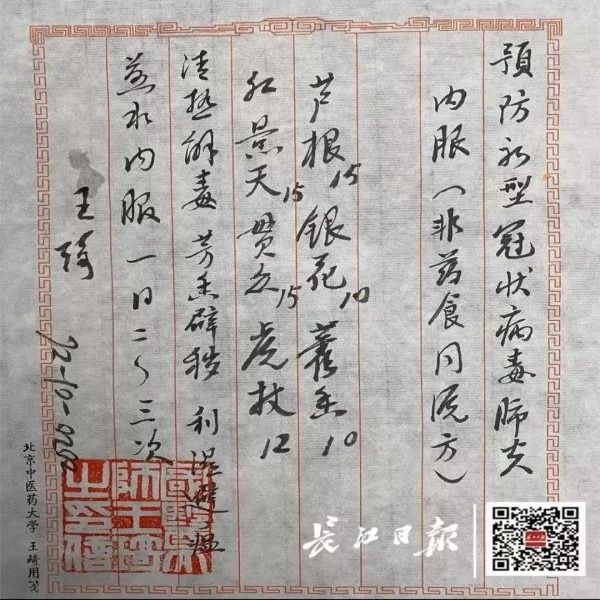 预防新型冠状病毒肺炎
内服（非药食同源方）
芦根15 银花10 藿香10
红景天15 贯众15 虎杖12
清热解毒 芳香辟秽 利湿避瘟
煎水内服 一日二～三次
王琦
2020-01-26
北京中医药大学 王琦用笺
长江日报